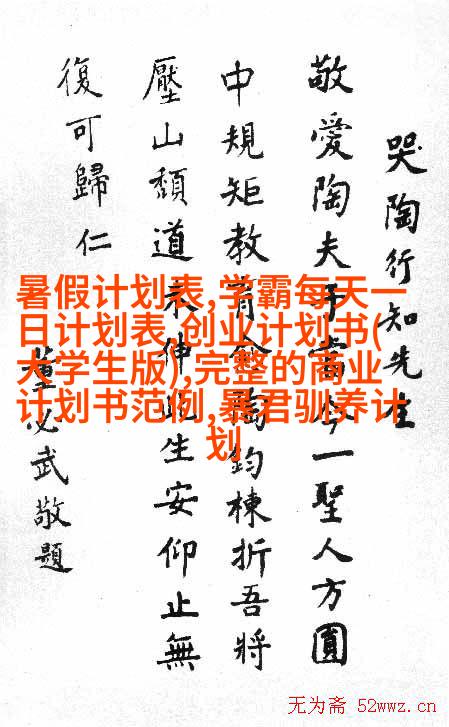 哭陶行知先生
敬愛陶夫子當今一聖人方圓
中規矩教育陶鈞棟折吾將
壓山頹道未伸此生安仰止無
復可歸仁
董必武敬題
暑假计划表,学霸每天一
日计划表,创业计划书(
大学生版),完整的商业
计划书范例,暴君驯养计
划
无为斋 52wwz.cn